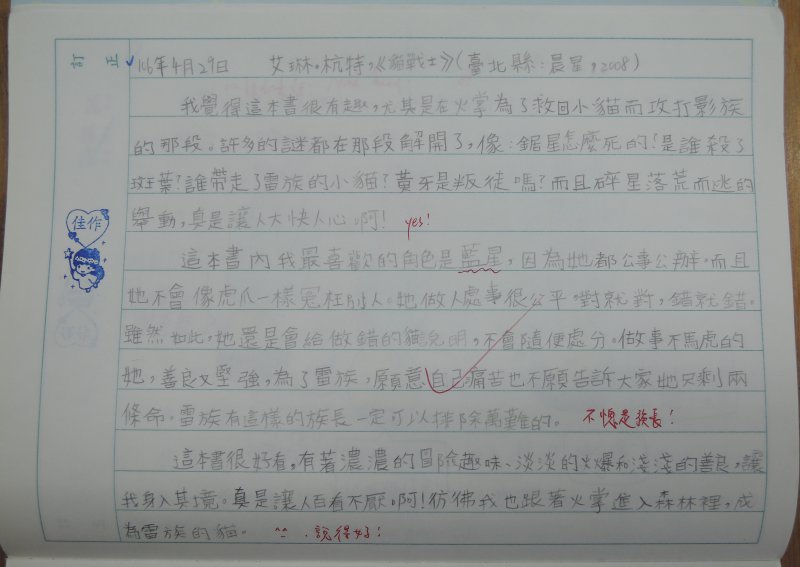 訂正
106年4月29日 艾琳·杭特,《貓戰士》(臺北縣:晨星,2008)
我覺得這本書很有趣,尤其是在火掌為了救回小貓而攻打影族
的那段。許多的謎都在那段解開了,像:鋸星怎麼死的!是誰殺了
斑葉?誰帶走了雷族的小貓?黃牙是叛徒嗎?而且碎星落荒而逃的
舉動,真是讓人大快人心啊! yes!
佳作
這本書內我最喜歡的角色是藍星,因為她都公事公辨。而且
她不會像虎爪一樣冤枉別人。她做人處事很公平。對就對,錯就錯。
雖然如此,她還是會給做錯的貓說明,不會隨便處分。做事不馬虎的
她,善良又堅強,為了雷族,願意自己痛苦也不願告訴大家她只剩兩
條命。雷族有這樣的族長一定可以排除萬難的。 不愧是族長!
這本書很好看,有著濃濃的冒險趣味、淡淡的火爆和淺淺的善良,讓
我身入其境。真是讓人百看不厭啊!彷彿我也跟著火掌進入森林裡,成
為雷族的貓。 ^^ 說得好!